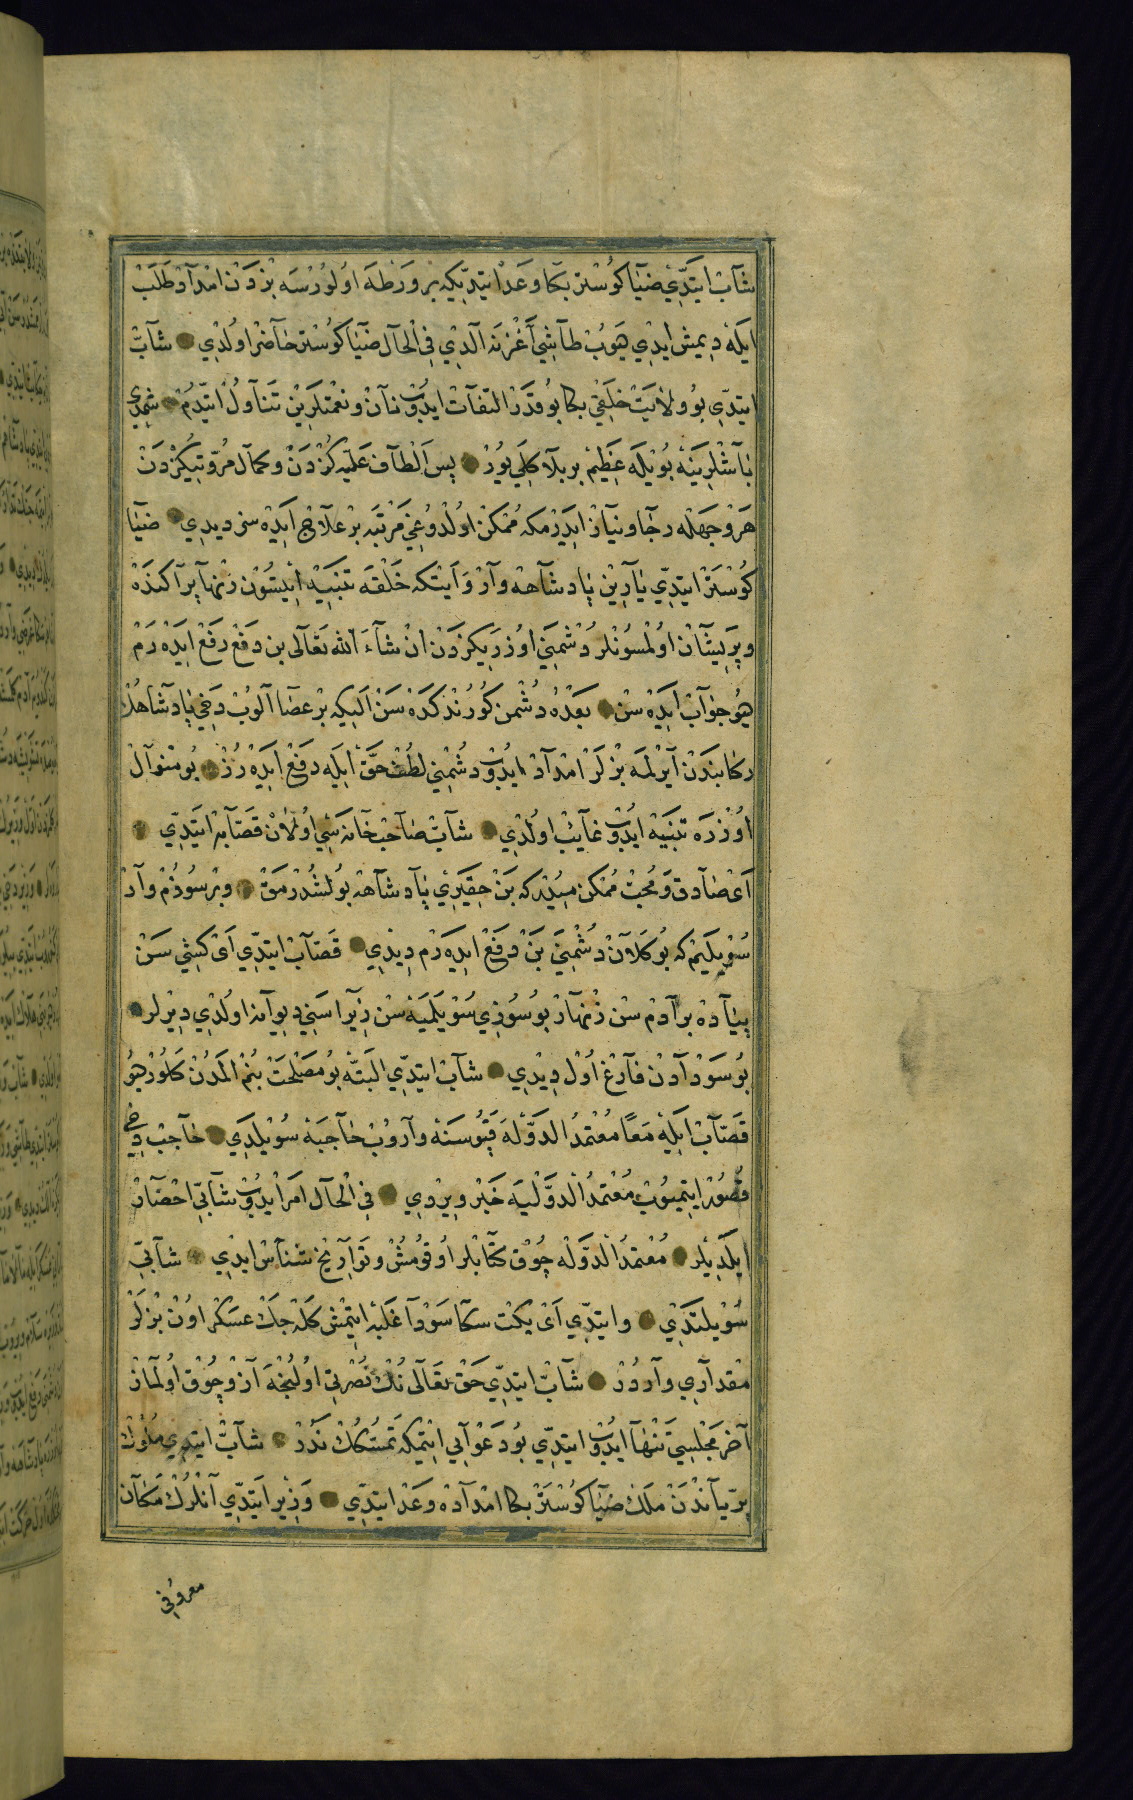 شاب ایتدی ضیا کوستر بکا وعد ایتدیکه بر ورطه اولورسه بزدن امداد طلب
ایله دیمش ایدی هیوب طاشی آغزنه آلدی فی الحال ضیا کوستر حاضر اولدی ● شاب
ایتدی بو ولایت خلقی بکا بو قدر التفات ایدوب نان ونعمتلرین تناول ایتدم ● شمدی
باشلرینه بویله عظیم بر بلا کلییور ● پس الطاف علیه کزدن وکمال مروتیکزدن
هر وجهله رجا ونیاز ایدرمکه ممکن اولدوغی مرتبه بر علاج ایده سز دیدی ● ضیا
کوستر ایتدی یارین پادشاهه وار و ایتکه خلقه تنبیه ایتسون زنهار پراکنده
وپریشان اولمسونلر دشمنی اوزریکزدن ان شاء الله تعالی بن دفع رفع ایده رم
هیو جواب ایده سن ● بعده دشمن کورندکده سن الیکه بر عصا آلوب دخی پادشاهک
رکابندن آیرلمه بزلر امداد ایدوب دشمنی لطف حق ایله دفع ایده رز ● بو منوال
اوزره تنبیه ایدوب غایب اولدی ● شاب صاحب خانه سی اولان قصابه ایتدی ●
ای صادق ومحب ممکن میدر که بن حقیری پادشاهه بولشدرمق ● وبر سوزم وار
سویلیم که بو کلان دشمنی بن دفع ایده رم دیدی ● قصاب ایتدی ای کشی سن
پیاده بر آدم سن زنهار بو سوزی سویلمیه سن زیرا سنی دیوانه اولدی دیرلر ●
بو سودادن فارغ اول دیدی ● شاب ایتدی البته بو مصلحت بنم المدن کلور هیو
قصاب ایله معا معتمد الدوله قپوسنه واروب حاجبه سویلدی ● حاجب دخی
قصور ایتمیوب معتمد الدولیه خبر ویردی ● فی الحال امر ایدوب شابی احضار
ایلدیلر ● معتمد الدوله چوق کتابلر اوقومش وتواریخ شناس ایدی ● شابی
سویلتدی ● وایتدی ای یکت سکا سودا غلبه ایتمش کله جک عسکر اون بزلر
مقداری واردر ● شاب ایتدی حق تعالی نک نصرتی اولنجه آز وچوق اولماز
آخر مجلسی تنها ایدوب ایتدی بو دعوایی ایتمکه تمسکک ندر ● شاب ایتدی ملوک
پریاندن ملک ضیا کوستر بکا امداده وعد ایتدی ● وزیر ایتدی آنلرک مکان
معروفی